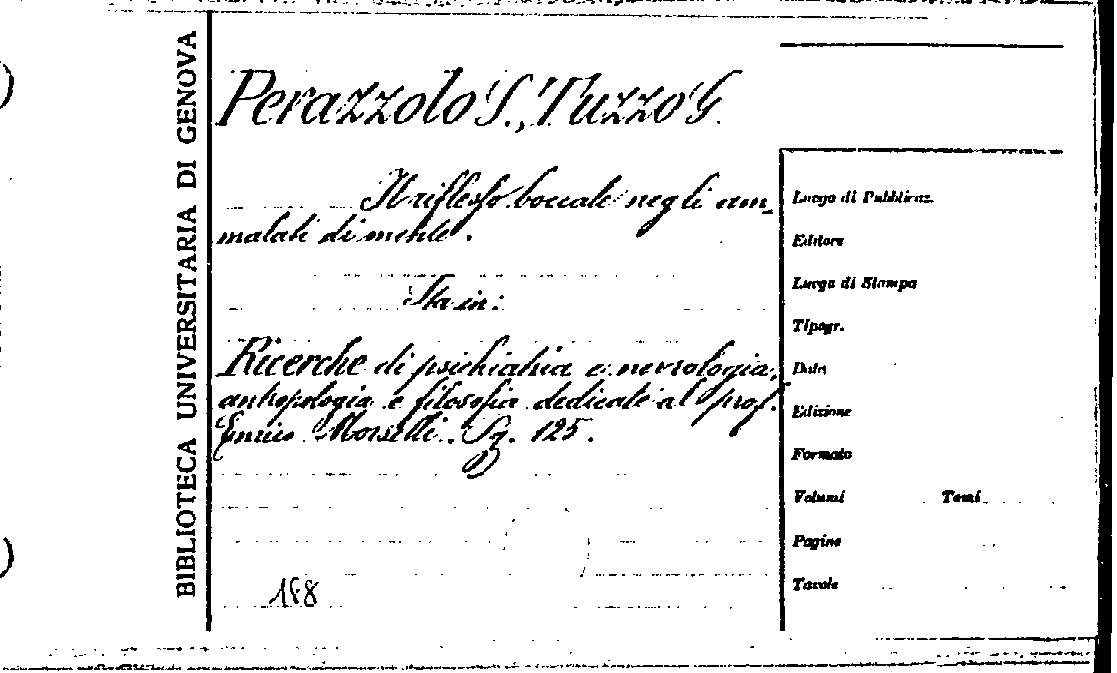 BIBLIOTECA UNIVERSITARIA DI GENOVA
Perazzolo S., Tuzzo G.
Il riflesso boccale negli am_
malati di mente.
Sta in:
Ricerche di psichiatria e nevrologia,
antropologia e filosofia dedicate al prof.
Enrico Morselli. Pg. 125.
Luogo di Pubblicaz.
Editore
Luogo di Stampa
Tipogr.
Data
Edizione
Formato
Volumi Tomi
Pagine
Tavole